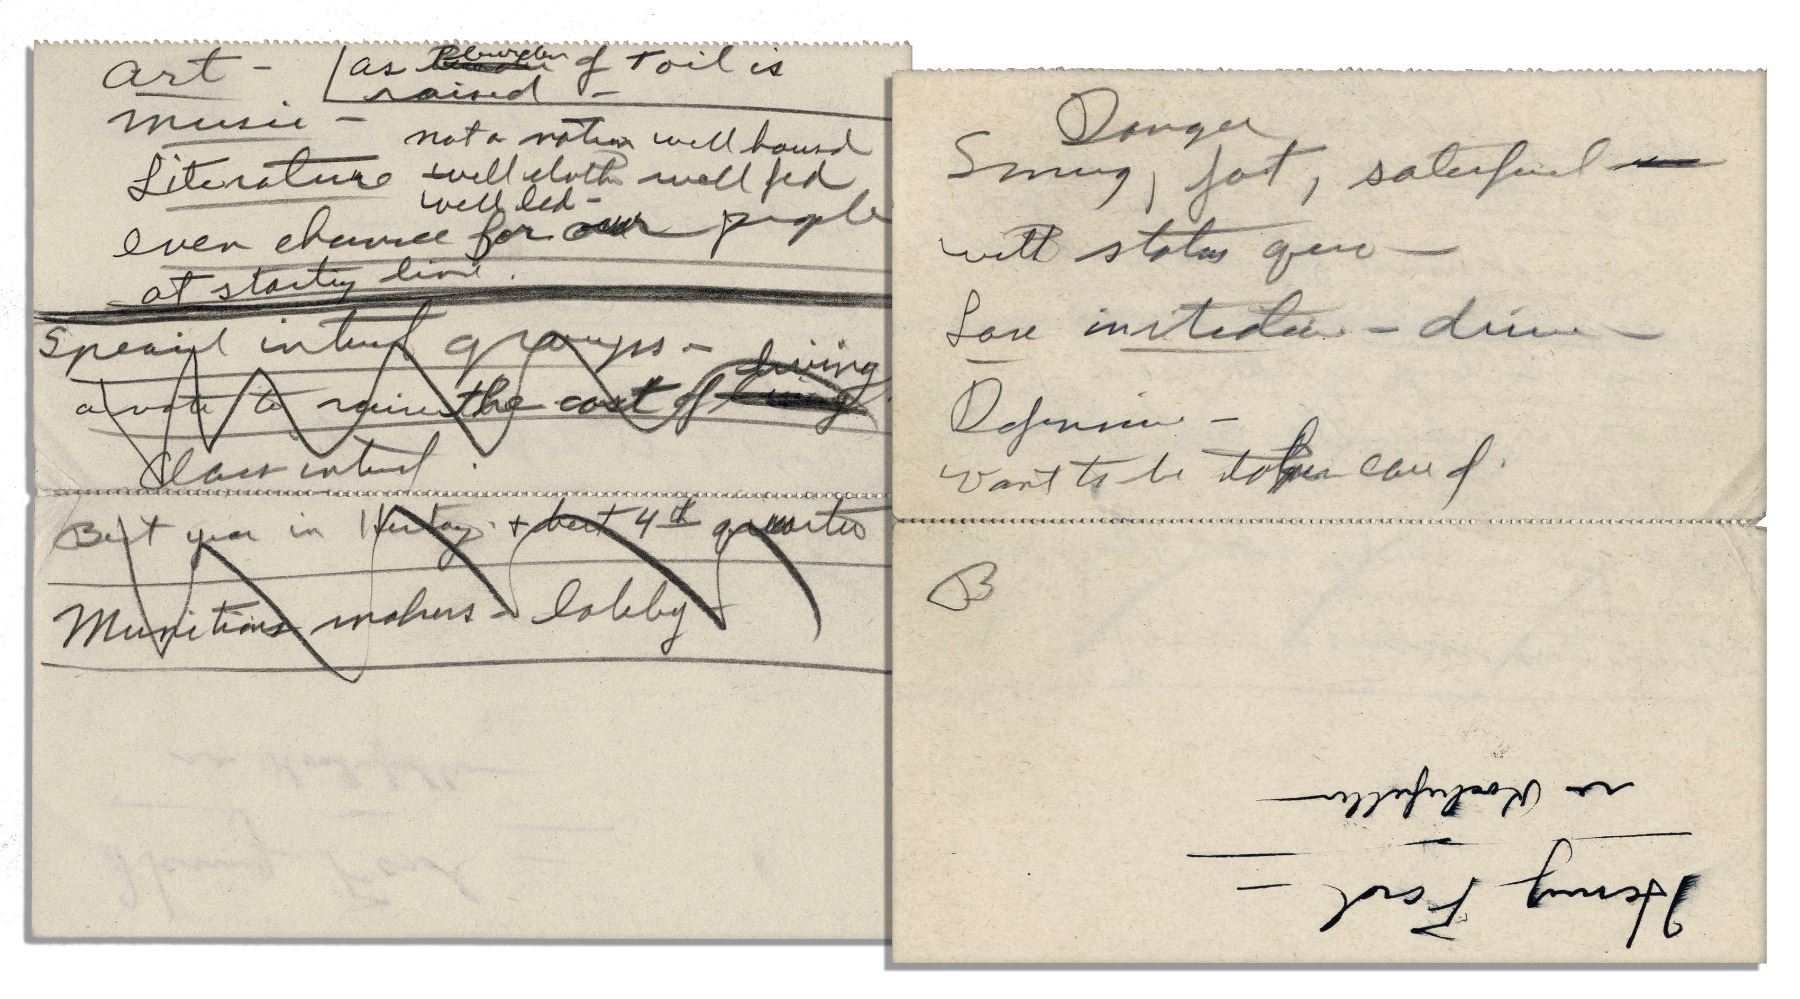 Art - as burden of toil is
raised -
music -
not a nation well housed
Literature well cloth well fed
well led -
even chance for our people
at starting line.
Special interest groups -
a vote to raise the cost of living living
Class interest.
Best year in History + best 4th quarter
Munitions makers - lobby
Danger
Smug, fat, satisfied
with status quo -
Lose - drive -
Defensive -
Want to be taken care of.
B
Henry Ford -
no Rockefeller